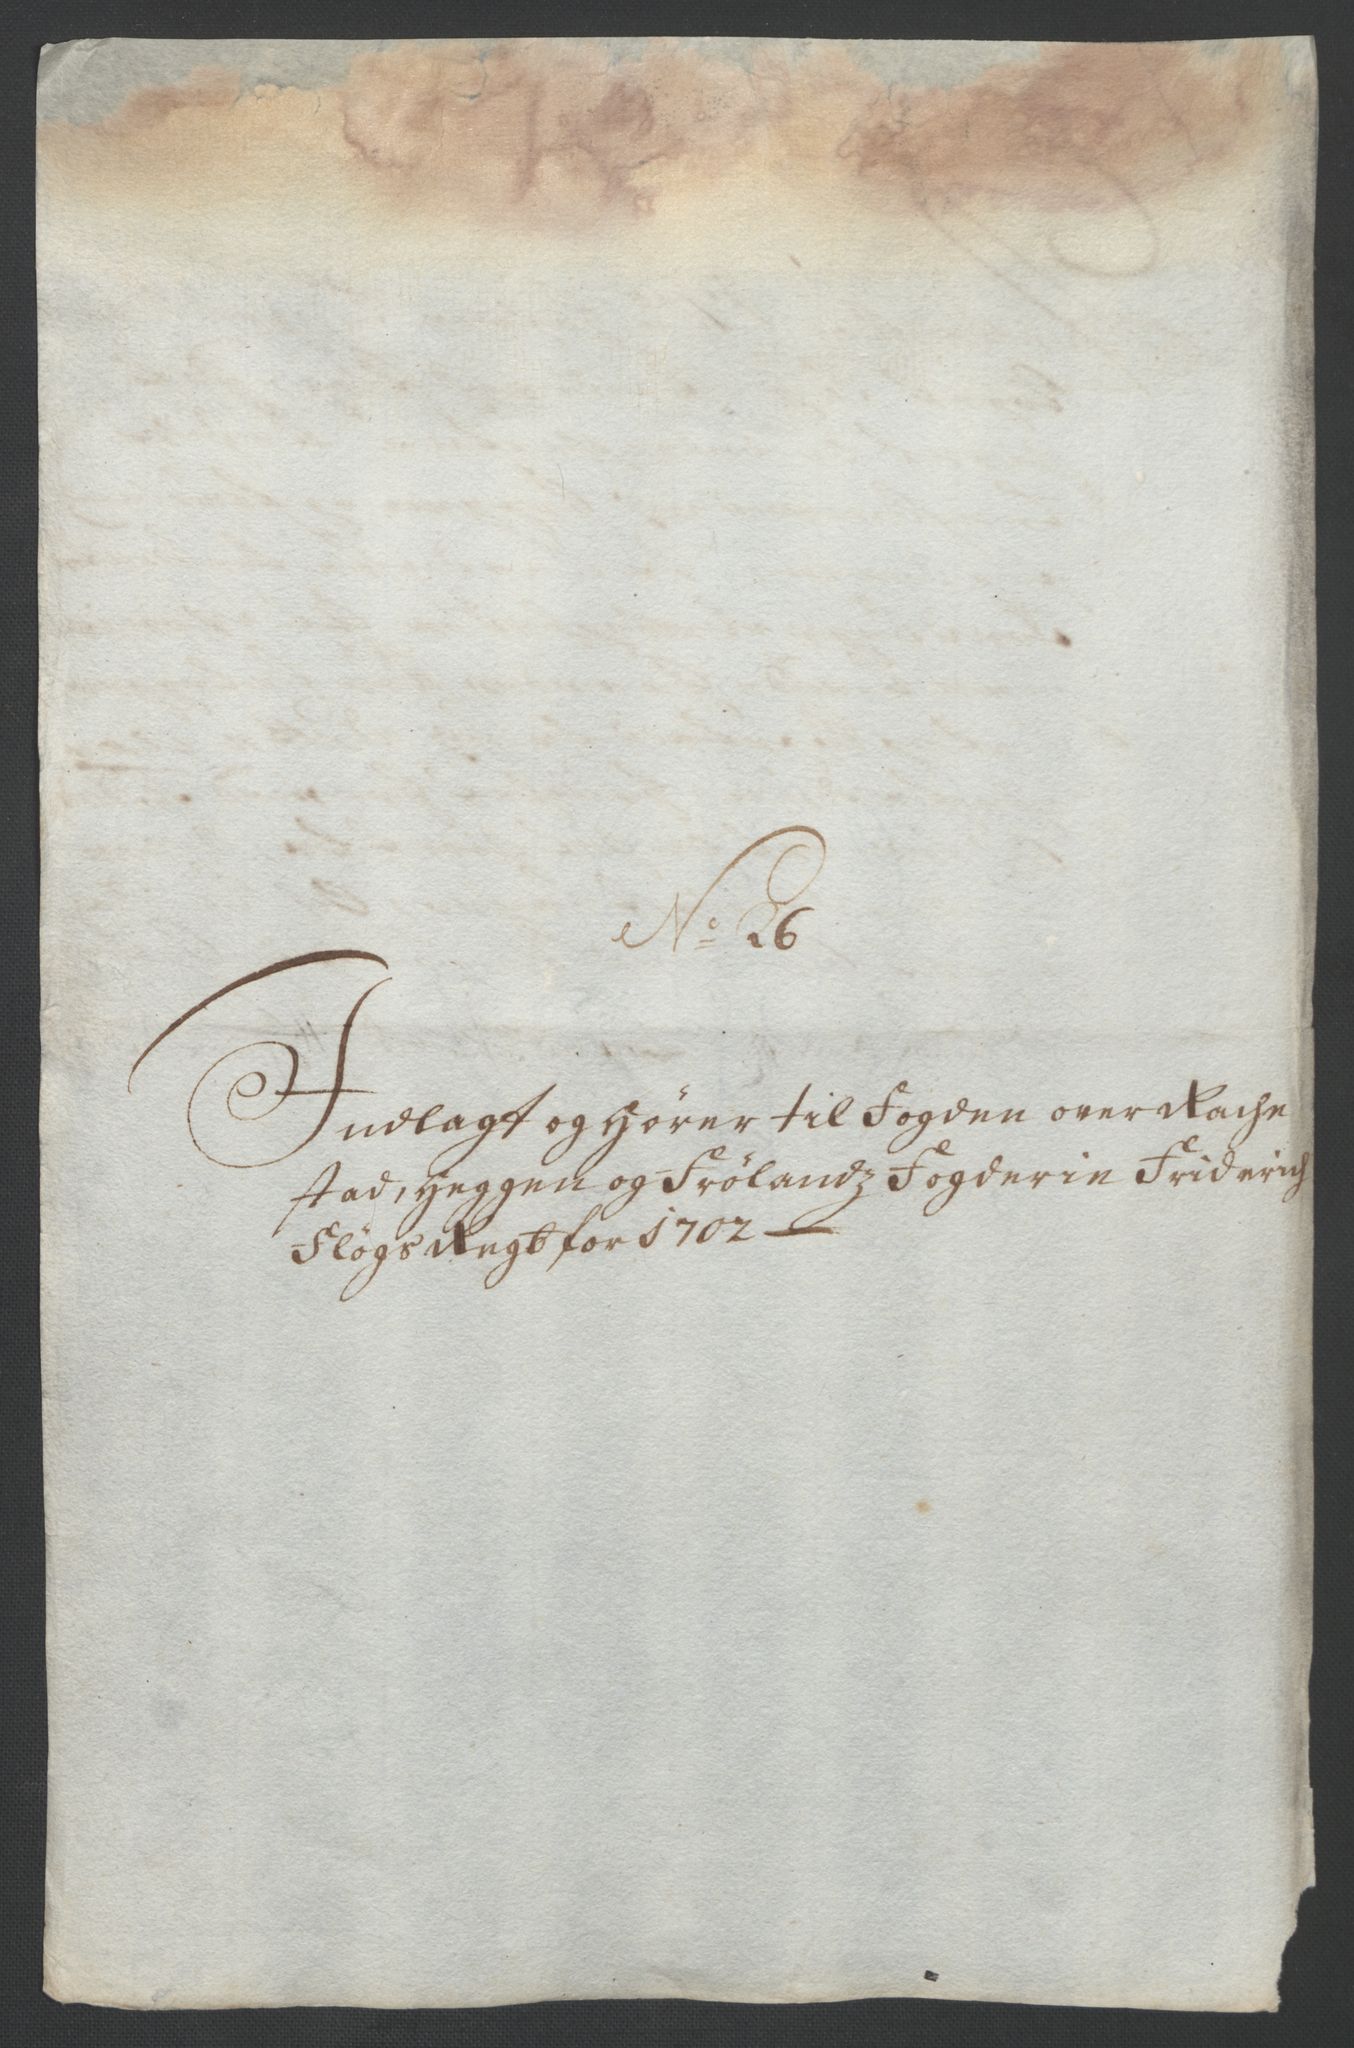 No 26
Indlagt og hörer til Fogden over Rache
stad, Heggen og Frölandz Fogderie Friderich
Flögs Regb for 1702